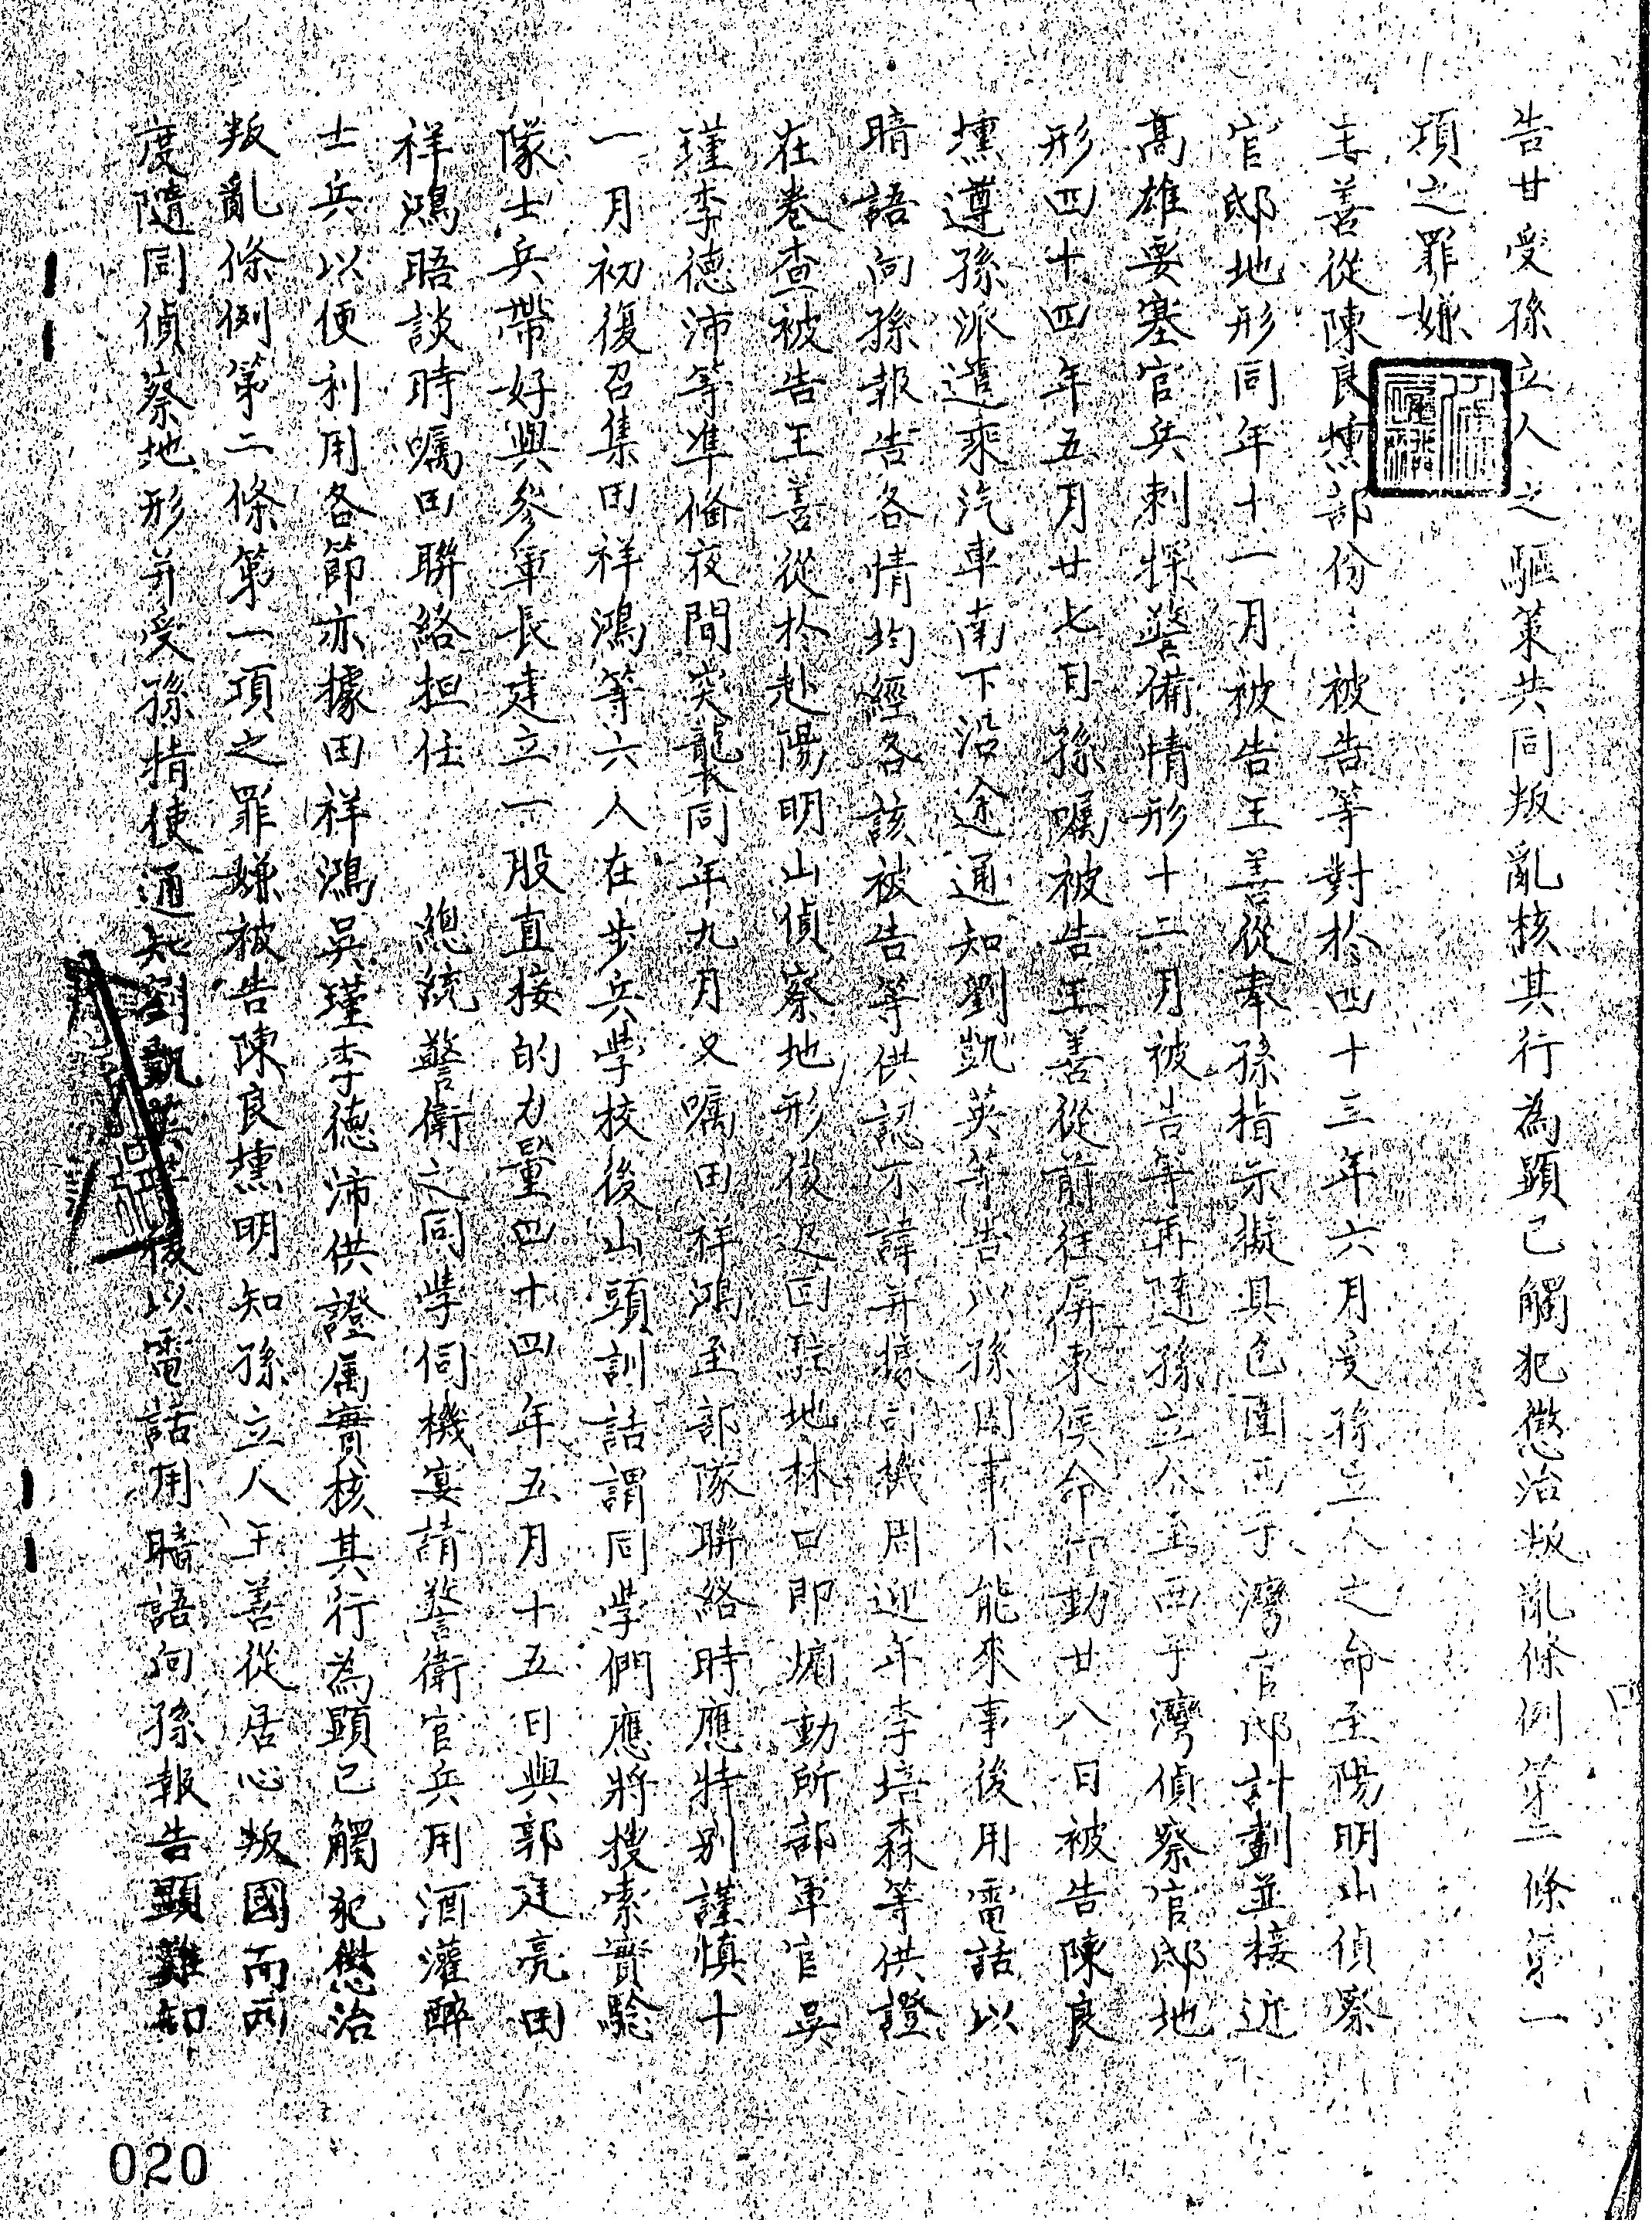 告甘受孫立人之驅策共同叛亂核其行為顯已觸犯懲治叛亂條例第二條第一
項之罪嫌
王善從陳良壎部份：被告等對於四十三年六月受孫立人之命至陽明山偵察
官邸地形同年十一月被告王善從奉孫指示擬具包圍西子灣官邸計劃並接近
高雄要塞官兵刺探警備情形十二月被告等再隨孫立人至西子灣偵察官邸地
形四十四年五月廿七日孫囑被告王善從前往屏東候命行動廿八日被告陳良
壎遵孫派遣乘汽車南下沿途通知劉凱英等告以孫因事不能來事後用電話以
暗語向孫報告各情均經各該被告等供認不諱并據司機周迎年李培森等供證
在卷查被告王善從於赴陽明山偵察地形後返回駐地林口即煽動所部軍官吳
瑾李德沛等準備夜間突襲同年九月又囑田祥鴻至部隊聯絡時應特別謹慎十
一月初復召集田祥鴻等六人在步兵學校後山頭訓話謂同學們應將搜索實驗
隊士兵帶好與參軍長建立一股直接的力量四十四年五月十五日與郭廷亮田
祥鴻晤談時囑田聯絡担任 總統警衛之同學伺機宴請警衛官兵用酒灌醉
士兵以便利用各節亦據田祥鴻吳瑾李德沛供證属實核其行為顯已觸犯懲治
叛亂條例第二條第一項之罪嫌被告陳良壎明知孫立人王善從居心叛國而兩
度隨同偵察地形并受孫指使通知劉凱英等後以電話用暗語向孫報告顯難卸
020